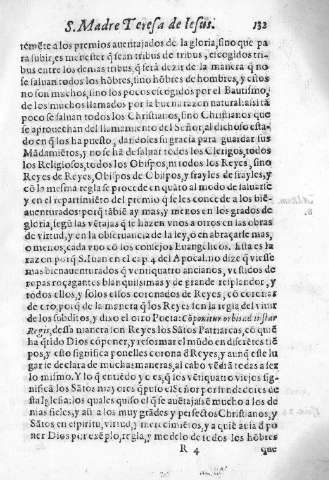 S. Madre Teresa de Iesus. 132
temẽte a los premios auentajados de la gloria, sino que pa
ra subir, es menester q̃ sean tribus de tribus, escogidos tri-
bus entre los demas tribus, q̃ será dezir de la manera q̃ no
se saluan todos los hõbres, sino hõbres de hombres, y estos
no son muchos, sino los pocos escogidos por el Bautismo,
de los muchos llamados por la buena razon natural: assi tã
poco se saluan todos los Christianos, sino Christianos que
se aprouechan del llamamiento del Señor, al dichoso esta-
do en q̃ los ha puesto, dandoles su gracia para guardar sus
Mãdamiẽtos, y no se hã de saluar todos los Clerigos, todos
los Religiosos, todos los Obispos, ni todos los Reyes, sino
Reyes de Reyes, Obispos de Obispos, y frayles de frayles, y
cõ la mesma regla se procede en quãto al modo de saluarse
y en el repartimiẽto del premio q̃ se les concede a los biẽ-
auenturados: porq̃ tãbiẽ ay mas, y menos en los grados de
gloria, segũ las vẽtajas q̃ se hazen vnos a otros en las obras
de virtud, y en la obseruancia de la ley, o en abraçarse mas,
o menos, cada vno cõ los consejos Euangelicos. Esta es la
razon porq̃ S. Iuan en el cap. 4. del Apocal. no dize q̃ viesse
mas bienauenturados q̃ veintiquatro ancianos, vestidos de
ropas roçagantes blanquissimas y de grande resplandor, y
todos ellos, y solos ellos coronados de Reyes, cõ coronas
de oro, porq̃ de la manera q̃ los Reyes son la regla del viuir
de los subditos, y dixo el otro Poeta: Cõponitur orbis ad instar
Regis, dessa manera son Reyes los Sãtos Patriarcas, cõ quẽ
ha q̃rido Dios cõponer, y reformar el mũdo en diferẽtes tiẽ
pos, y esto significa ponelles corona d̃ Reyes, y aunq̃ este lu
gar se declara de muchas maneras, al cabo vẽdrã todas a ser
lo mismo. Y lo q̃ entẽdo yo es, q̃ los vẽtiquatro viejos signi-
ficã los Sãtos mayores q̃ puso el Señor por fundadores de
sta Iglesia: los quales colijo el q̃ se auẽtajaiã mucho a los de
mas fieles, y assi a los muy grãdes y perfectos Christianos, y
Santos en espiritu, virtud, y merecimiẽtos, y a quiẽ auia d̃ po
ner Dios por exẽplo, regla, y modelo de todos los hõbres
R 4 que